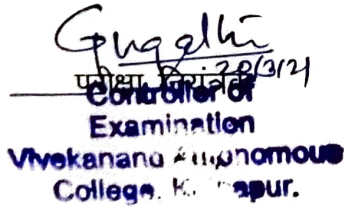 20/3/21
परीक्षा नियंत्रक
Controller of
Examination
Vivekanand Autonomous
College, K